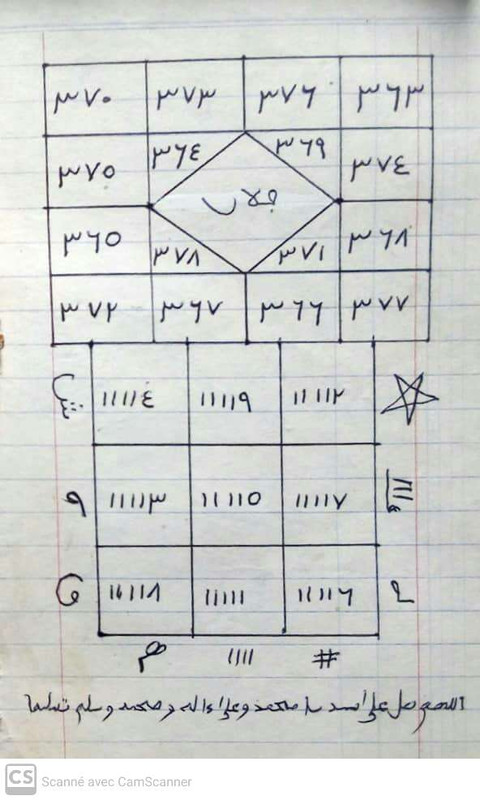 ٣٦٣ ٣٧٦ ٣٧٣ ٣٧٠
٣٧٤ ٣٦٩ ٣٦٤ ٣٧٥
٣٦٨ ٣٧١ ٣٧٨ ٣٦٥
٣٧٧ ٣٦٦ ٣٦٧ ٣٧٢
١١١١٢ ١١١١٩ ١١١١٤
١١١١٧ ١١١١٥ ١١١١٣
١١١١٦ ١١١١١ ١١١١٨
# ١١١١
اللهم صل على سيدنا محمد وعلى ءاله وصحبه وسلم تسليما
CS Scanné avec CamScanner